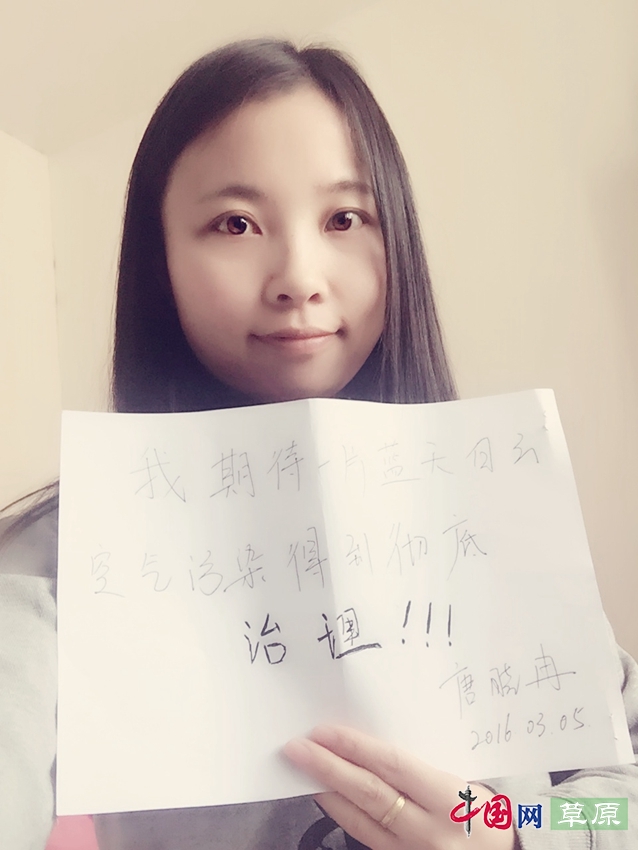 我期待一片蓝天白云
空气污染得到彻底
治理!!!
唐晓冉
2016 03.05.
中国网 草原